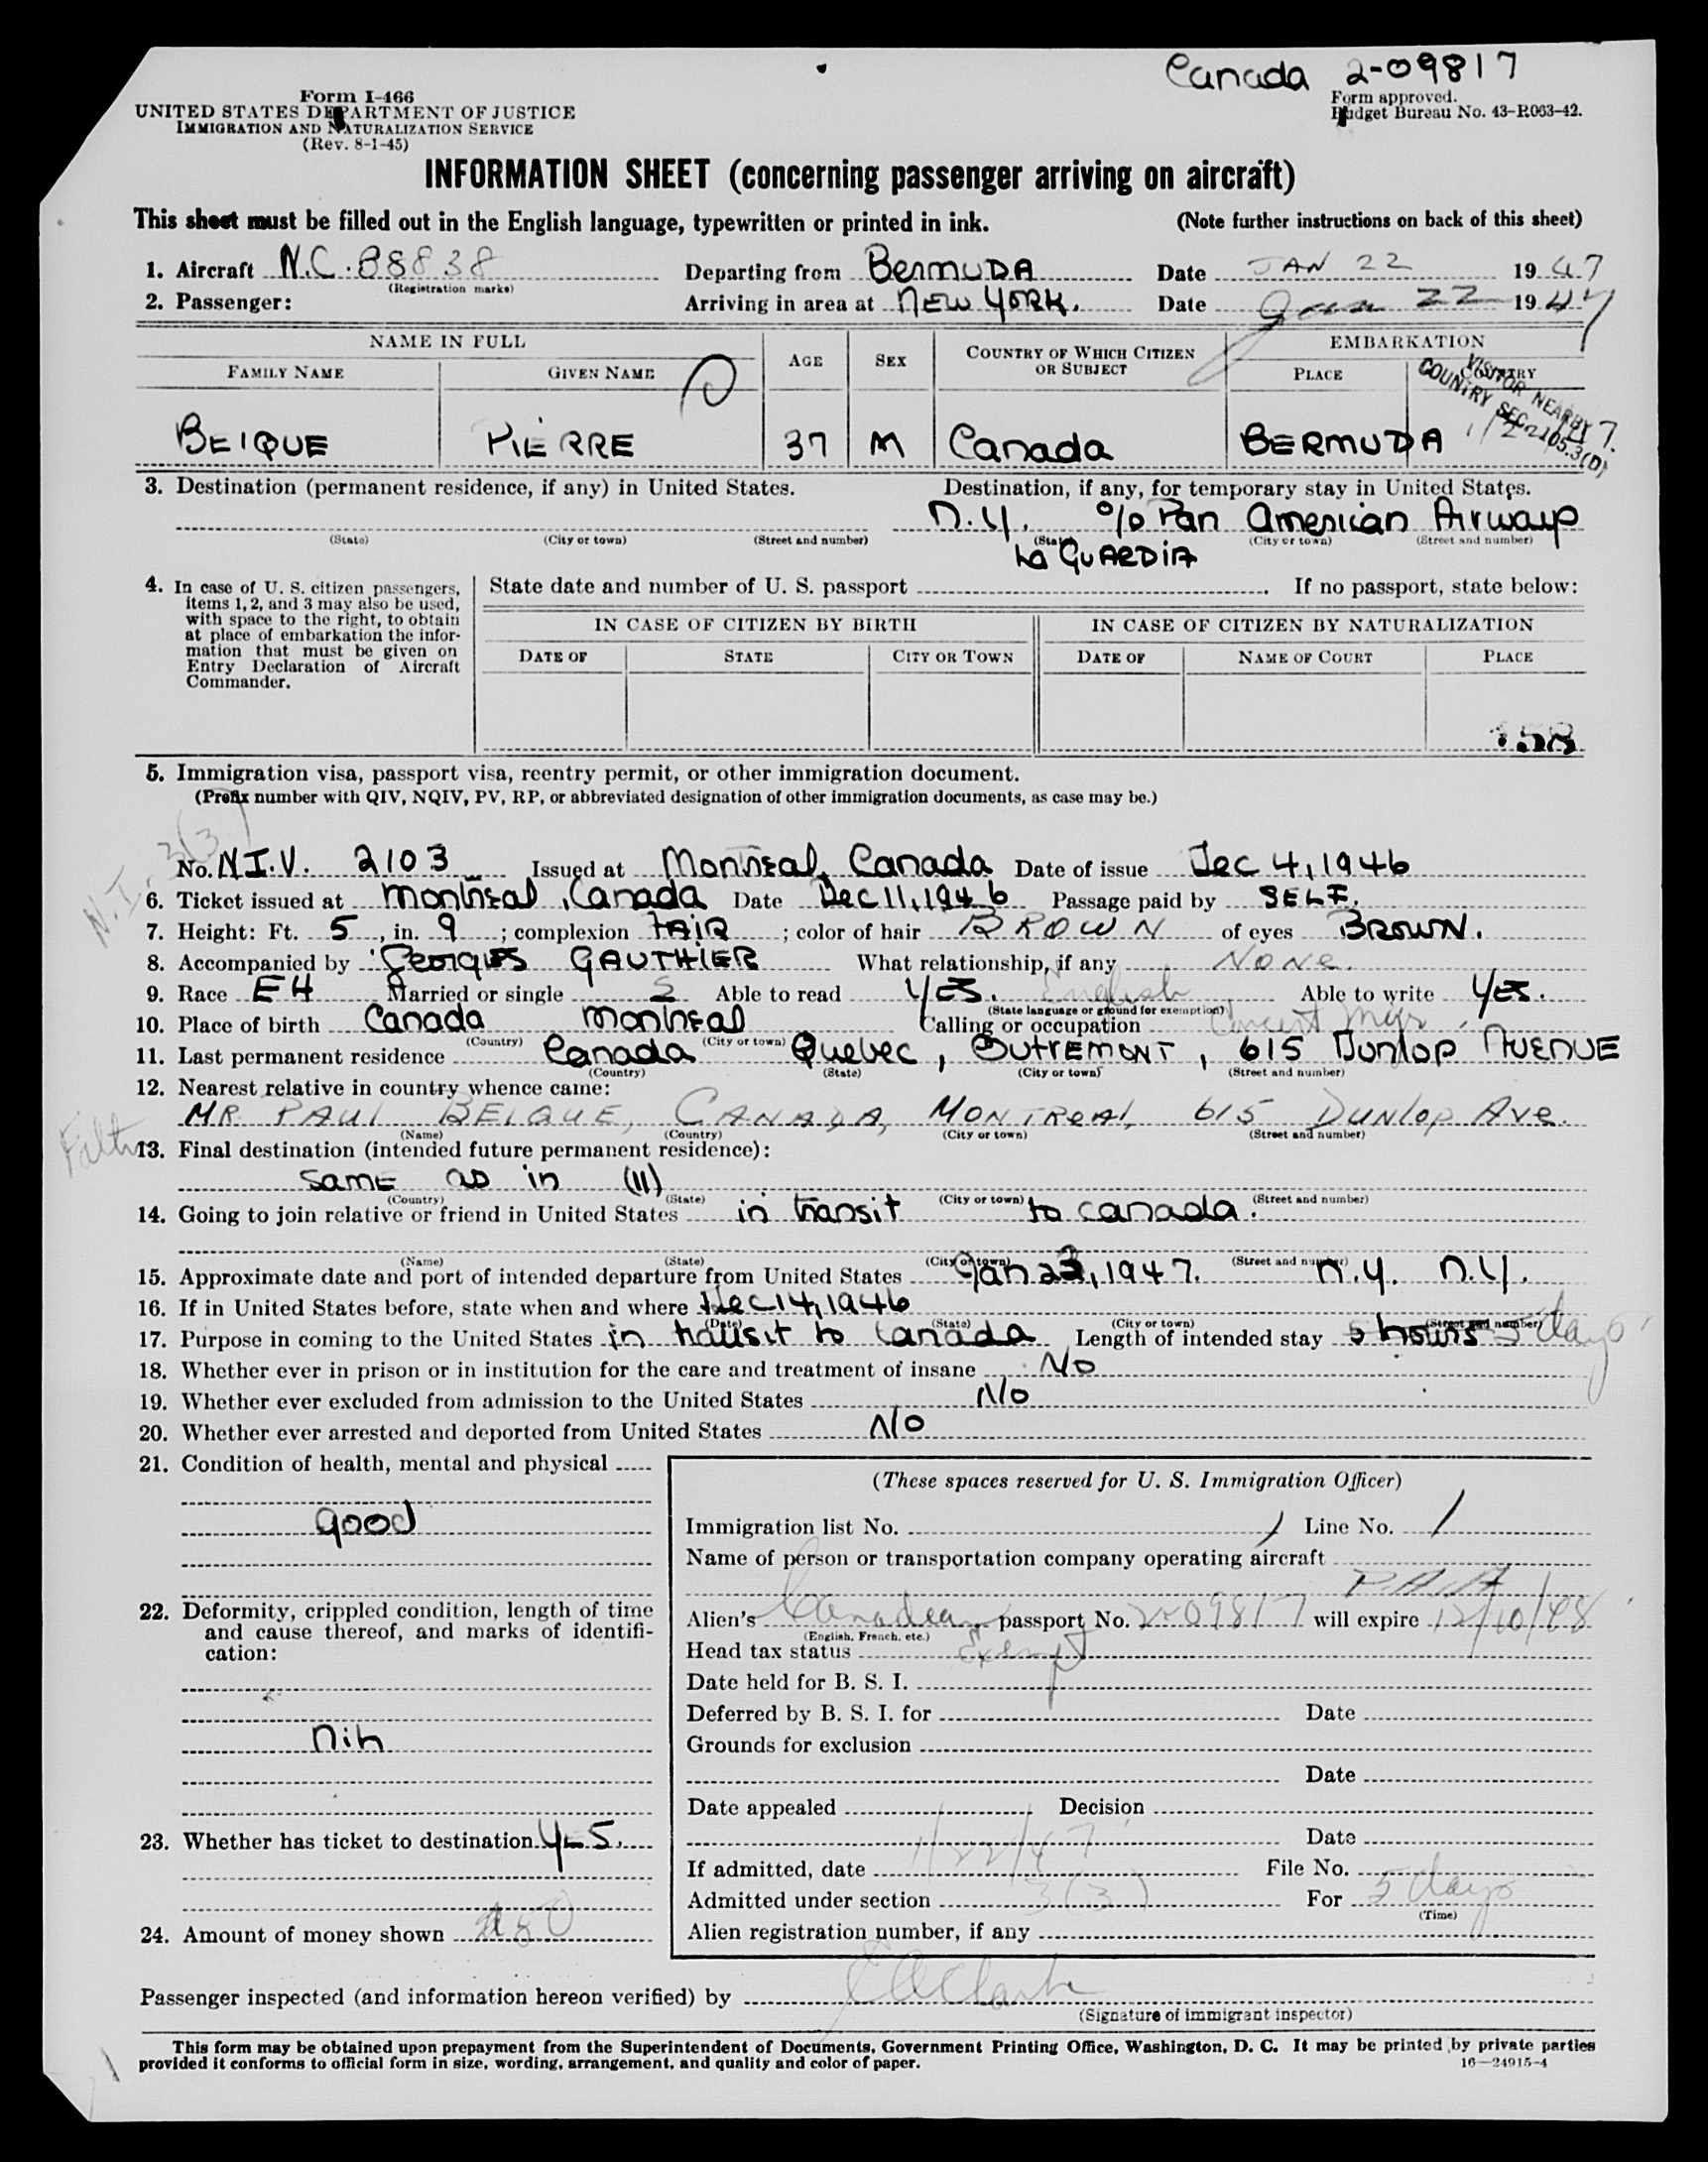 Canada 2-09817
Form I-466
UNITED STATES DEPARTMENT OF JUSTICE
IMMIGRATION AND NATURALIZATION SERVICE
(Rev. 8-1-45)
Form approved.
Budget Bureau No. 43-R063-42.
INFORMATION SHEET (concerning passenger arriving on aircraft)
This sheet must be filled out in the English language, typewritten or printed in ink. (Note further instructions on back of this sheet)
1. Aircraft N.C. 88838 Departing from BERMUDA Date JAN 22 1947
(Registration marks)
2. Passenger: Arriving in area at NEW YORK. Date Jan 22 1947
NAME IN FULL AGE SEX COUNTRY OF WHICH CITIZEN OR SUBJECT EMBARKATION
FAMILY NAME GIVEN NAME PLACE COUNTRY
VISITOR NEARBY
COUNTRY SEC. 2105.3(D)
BEIQUE PIERRE 37 M Canada BERMUDA
3. Destination (permanent residence, if any) in United States. Destination, if any, for temporary stay in United States.
N.Y. c/o Pan American Airways
(State) (City or town) (Street and number) (State) (City or town) (Street and number)
La GUARDIA
4. In case of U. S. citizen passengers, items 1, 2, and 3 may also be used, with space to the right, to obtain at place of embarkation the information that must be given on Entry Declaration of Aircraft Commander.
State date and number of U. S. passport . If no passport, state below:
IN CASE OF CITIZEN BY BIRTH IN CASE OF CITIZEN BY NATURALIZATION
DATE OF STATE CITY OR TOWN DATE OF NAME OF COURT PLACE
158
5. Immigration visa, passport visa, reentry permit, or other immigration document.
(Prefix number with QIV, NQIV, PV, RP, or abbreviated designation of other immigration documents, as case may be.)
N.I. 3(3)
No. N.I.V. 2103 Issued at Montreal, Canada Date of issue Dec 4, 1946
6. Ticket issued at Montreal, Canada Date Dec 11, 1946 Passage paid by SELF.
7. Height: Ft. 5, in. 9; complexion FAIR; color of hair BROWN of eyes BROWN.
8. Accompanied by Georges GAUTHIER What relationship, if any None.
9. Race Married or single S Able to read YES. English Able to write YES.
(State language or ground for exemption)
10. Place of birth Canada Montreal Calling or occupation Concert Mgr.
(Country) (City or town)
11. Last permanent residence Canada Quebec, OUTREMONT, 615 Dunlop AVENUE
(Country) (State) (City or town) (Street and number)
12. Nearest relative in country whence came:
MR PAUL BEIQUE, CANADA, MONTREAL, 615 DUNLOP AVE.
(Name) (Country) (City or town) (Street and number)
13. Final destination (intended future permanent residence):
same as in (11)
(Country) (State) (City or town) (Street and number)
14. Going to join relative or friend in United States in transit to canada.
(Name) (State) (City or town) (Street and number)
15. Approximate date and port of intended departure from United States Jan 23, 1947. N.Y. N.Y.
16. If in United States before, state when and where Dec 14, 1946
(Date) (State) (City or town) (Street and number)
17. Purpose in coming to the United States in transit to Canada Length of intended stay 5 hours 5 days
18. Whether ever in prison or in institution for the care and treatment of insane No
19. Whether ever excluded from admission to the United States No
20. Whether ever arrested and deported from United States No
21. Condition of health, mental and physical
good
22. Deformity, crippled condition, length of time and cause thereof, and marks of identification:
23. Whether has ticket to destination YES.
24. Amount of money shown
(These spaces reserved for U. S. Immigration Officer)
Immigration list No. 1 Line No. 1
Name of person or transportation company operating aircraft
P.A.A
Alien's Canadian passport No. 2-09817 will expire 12/10/48
(English, French, etc.)
Head tax status Exempt
Date held for B. S. I.
Deferred by B. S. I. for Date
Grounds for exclusion
Date
Date appealed Decision
Date
If admitted, date 1/22/47 File No.
Admitted under section 3(3) For 5 days
(Time)
Alien registration number, if any
Passenger inspected (and information hereon verified) by
(Signature of immigrant inspector)
This form may be obtained upon prepayment from the Superintendent of Documents, Government Printing Office, Washington, D. C. It may be printed by private parties
provided it conforms to official form in size, wording, arrangement, and quality and color of paper. 16—24915-4